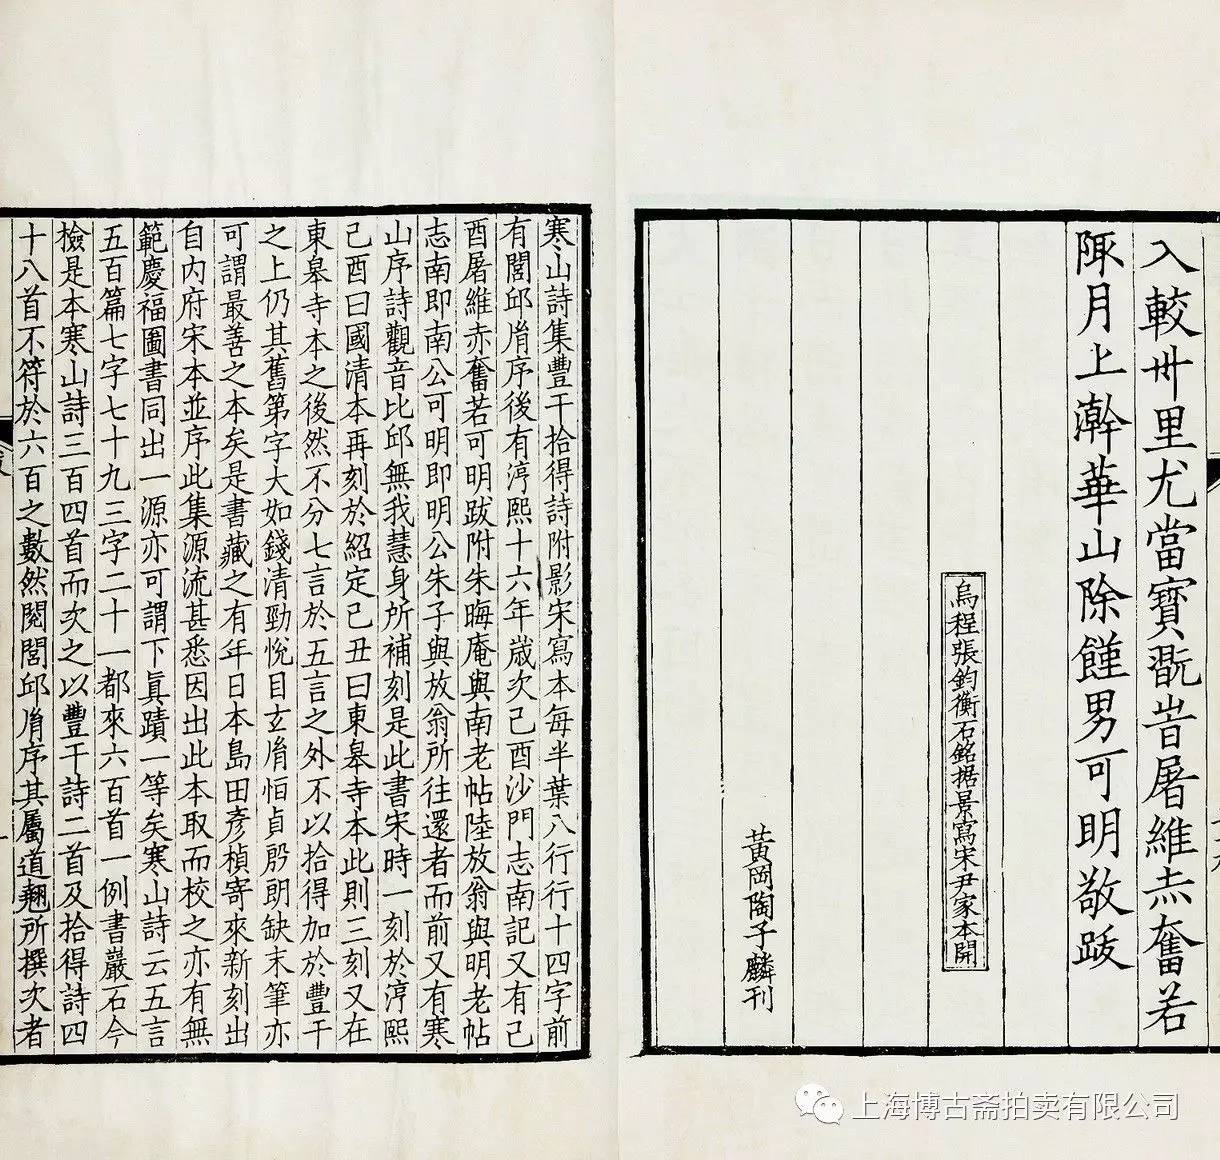 入較卅里尤當寶翫旹屠維赤奮若
陬月上澣華山除饉男可明敬跋
烏程張鈞衡石銘据景寫宋尹家本開
黃岡陶子麟刊
寒山詩集豐干拾得詩附影宋寫本每半葉八行行十四字前
有閭邱胤序後有淳熙十六年歲次己酉沙門志南記又有己
酉屠維赤奮若可明跋附朱晦庵與南老帖陸放翁與明老帖
志南即南公可明即明公朱子與放翁所往還者而前又有寒
山序詩觀音比邱無我慧身所補刻是此書宋時一刻於淳熙
己酉曰國清本再刻於紹定己丑曰東皋寺本此則三刻又在
東皋寺本之後然不分七言於五言之外不以拾得加於豐干
之上仍其舊第字大如錢清勁悅目玄胤恒貞殷朗缺末筆亦
可謂最善之本矣是書藏之有年日本島田彥楨寄來新刻出
自內府宋本並序此集源流甚悉因出此本取而校之亦有無
範慶福圖書同出一源亦可謂下真蹟一等矣寒山詩云五言
五百篇七字七十九三字二十一都來六百首一例書巖石今
檢是本寒山詩三百四首而次之以豐干詩二首及拾得詩四
十八首不符於六百之數然閱閭邱胤序其屬道翹所撰次者
上海博古斋拍卖有限公司